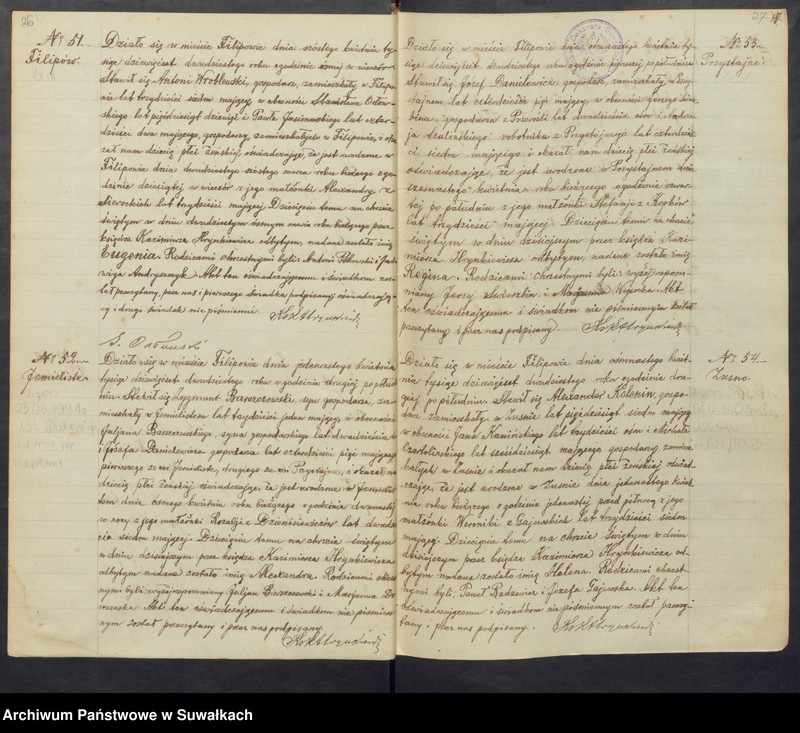 26
Nº 51.
Filipów.
Działo się w mieście Filipowie dnia szóstego kwietnia ty-
siąc dziewięćset dwudziestego roku o godzinie ósmej w wieczór
Stawił się Antoni Wróblewski, gospodarz, zamieszkały w Filipo-
wie lat trzydzieści siedm mający, w obecności Stanisława
lat pięćdziesiąt dziewięć i Pawła Jasionowskiego lat czter-
dzieści dwa mającego, gospodarzy, zamieszkałych w Filipowie, i oka-
zał nam dziecię płci żeńskiej oświadczając, że jest urodzone w
Filipowie dnia dwudziestego szóstego marca roku bieżącego o go-
dzinie dziesiątej w wieczór z jego małżonki Alexandry z
lat trzydzieści mającej. Dziecięciu temu na chrzcie
świętym w dniu dwudziestym ósmym marca roku bieżącego przez
księdza Kazimierza Hrynkiewicza odbytym, nadane zostało imię
Eugenia. Rodzicami chrzestnymi byli: Antoni i Jad-
wiga Andryszczyk. Akt ten oświadczającemu i świadkom zos-
tał przeczytany, przez nas i pierwszego świadka podpisany, oświadczający
i drugi świadek nie piśmienni.
Nº 52.
Jemieliste.
Działo się w mieście Filipowie dnia jedenastego kwietnia
tysiąc dziewięćset dwudziestego roku o godzinie drugiej po połud-
niu. Stawił się Zygmunt Bawarowski, syn gospodarza, za-
mieszkały w Jemielistem lat trzydzieści jeden mający, w obecności
Juljana Bawarowskiego syna gospodarskiego lat dwadzieścia
i Józefa Danilewicza gospodarza lat czterdzieści pięć mającego
pierwszego ze wsi Jemieliste, drugiego ze wsi Przystajne, i okazał nam
dziecię płci żeńskiej oświadczając, że jest urodzone w Jemielis-
tem dnia ósmego kwietnia roku bieżącego o godzinie dwunastej
w nocy z jego małżonki Rozalji z Dzienisiewiczów lat dwadzieś-
cia siedm mającej. Dziecięciu temu na chrzcie świętym
w dniu dzisiejszym przez księdza Kazimierza Hrynkiewicza
odbytym nadane zostało imię Alexandra. Rodzicami chrzest-
nymi byli: wyżej wspomniany Juljan Bawarowski i Marjanna
Akt ten oświadczającemu i świadkom nie piśmien-
nym został przeczytany i przez nas podpisany.
27
Nº 53.
Przystajne.
Działo się w mieście Filipowie dnia kwietnia ty-
siąc dziewięćset dwudziestego roku o godzinie pierwszej po południu
Stawił się Józef Danilewicz, gospodarz, zamieszkały w Przy-
stajnem lat czterdzieści pięć mający, w obecności Jerzego
gospodarza z Przerośli lat dwadzieścia ośm i Andrze-
ja robotnika z Przystajnego lat czterdzieś-
ci siedm mającego i okazał nam dziecię płci żeńskiej
oświadczając, że jest urodzone w Przystajnem dnia
szesnastego kwietnia roku bieżącego o godzinie czwar-
tej po południu z jego małżonki Stefanji z Kopków
lat trzydzieści mającej. Dziecięciu temu na chrzcie
świętym w dniu dzisiejszym przez księdza Kazi-
mierza Hrynkiewicza odbytym, nadane zostało imię
Regina. Rodzicami chrzestnymi byli: wyżej wspom-
niany Jerzy i Akt
ten oświadczającemu i świadkom nie piśmiennym został
przeczytany i przez nas podpisany.
Nº 54.
Zusno.
Działo się w mieście Filipowie dnia ośmnastego kwiet-
nia tysiąc dziewięćset dwudziestego roku o godzinie dru-
giej po południu. Stawił się Alexander Kolenin, gospo-
darz zamieszkały w Zuśnie lat pięćdziesiąt siedm mający
w obecności Jana Kamińskiego lat trzydzieści ośm i Michała
Czartolińskiego lat sześćdziesiąt mającego gospodarzy, zamiesz-
kałych w Zuśnie i okazał nam dziecię płci żeńskiej oświad-
czając, że jest urodzone w Zuśnie dnia jedenastego kwiet-
nia roku bieżącego o godzinie jedenastej przed północą z jego
małżonki Weroniki z Gajewskich lat trzydzieści siedm
mającej. Dziecięciu temu na chrzcie świętym w dniu
dzisiejszym przez księdza Kazimierza Hrynkiewicza od-
bytym nadane zostało imię Helena. Rodzicami chrzest-
nymi byli: Paweł Radzewicz i Józefa Gajewska. Akt ten
oświadczającemu i świadkom nie piśmiennym został przeczy-
tany i przez nas podpisany.
Archiwum Państwowe w Suwałkach